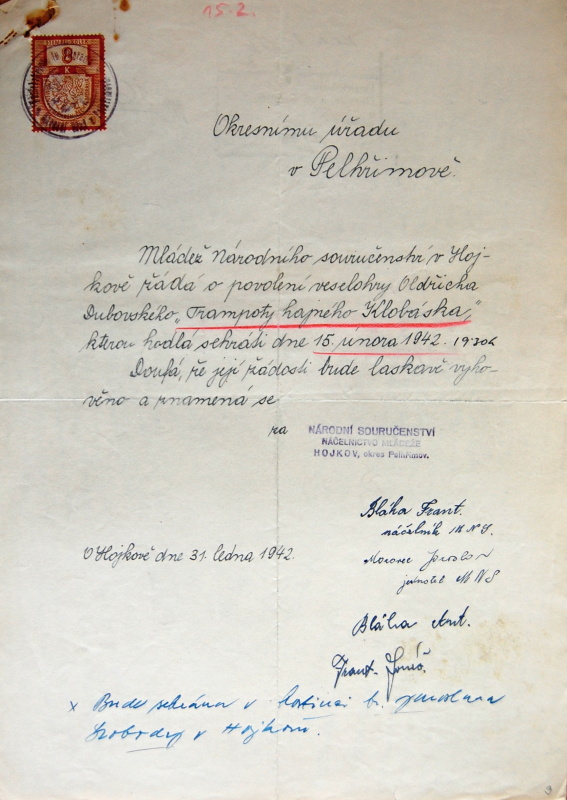 15.2.
8
K
Okresnímu úřadu
v Pelhřimově.
Mládež Národního souručenství v Hoj-
kově žádá o povolení veselohry Oldřicha
Dubovského „Trampoty hajného Klobáska,"
kterou hodlá sehráti dne 15. února 1942. 19:30h
Doufá, že její žádosti bude laskavě vyho-
věno a znamená se
za
NÁRODNÍ SOURUČENSTVÍ
NÁČELNICTVO MLÁDEŽE
HOJKOV, okres Pelhřimov.
Bláha Frant.
náčelník M.N.S.
V Hojkově dne 31. ledna 1942.
Moravec Jaroslav
jednatel MNS
Bláha Ant.
Frant.
x Bude sehrána v hostinci p. Jaroslava
Svobody v Hojkově.